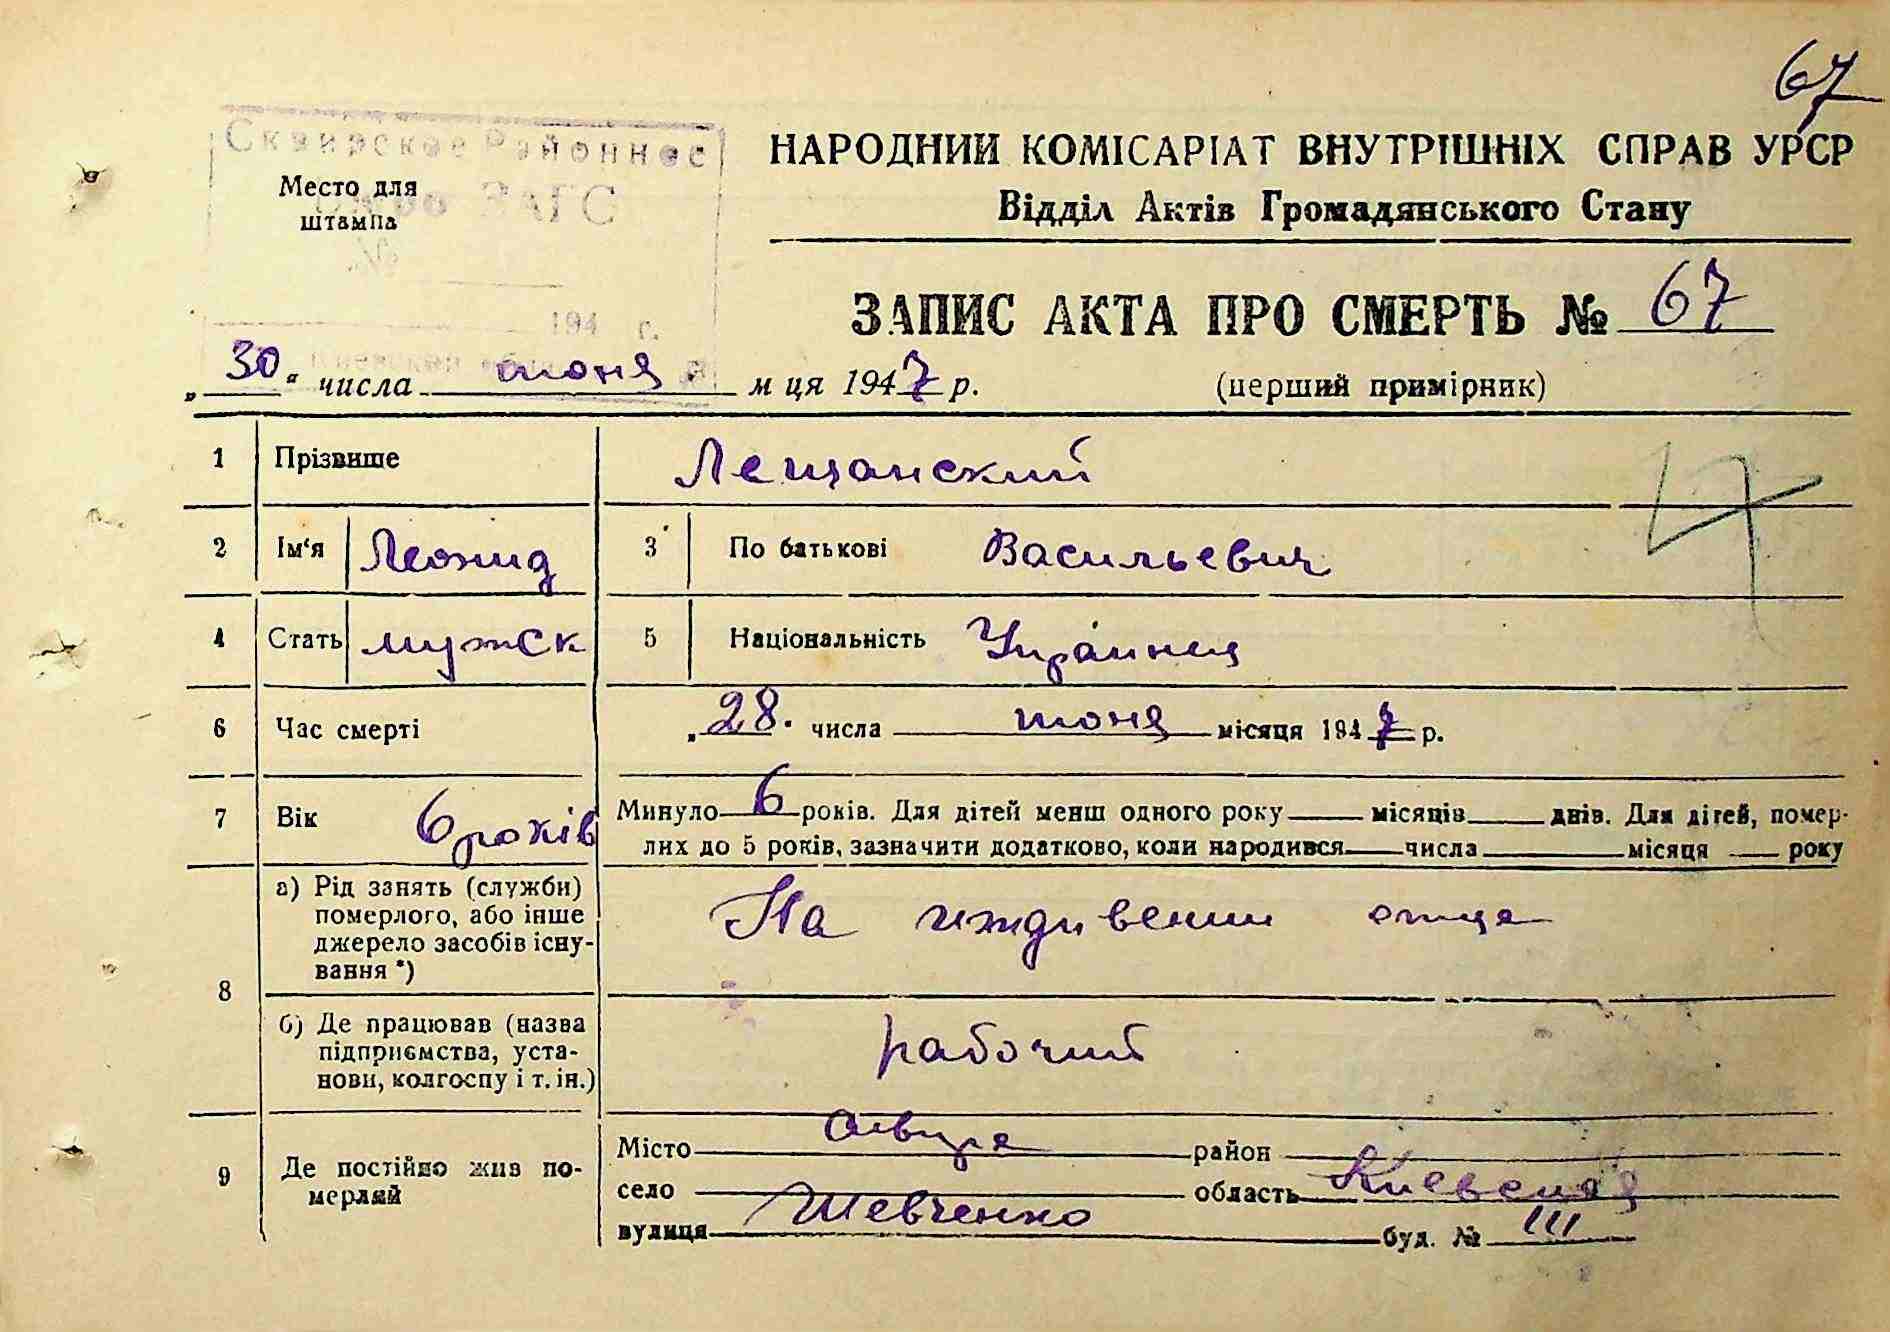 67
Сквирское Районное
Бюро ЗАГС
Место для
штампа
№
194 г.
НАРОДНИЙ КОМІСАРІАТ ВНУТРІШНІХ СПРАВ УРСР
Відділ Актів Громадянського Стану
ЗАПИС АКТА ПРО СМЕРТЬ № 67
„30“ числа июня м ця 1947 р. (перший примірник)
1 Прізвише Лещанский
2 Ім‘я Леонид 3 По батькові Васильевич
4 Стать мужск 5 Національність Украинец
6 Час смерті „28. числа июня місяця 1947 р.
7 Вік 6 років Минуло 6 років. Для дітей менш одного року місяців днів. Для дітей, помер-
лих до 5 років, зазначити додатково, коли народився числа місяця року
8 а) Рід занять (служби)
померлого, або інше
джерело засобів існу-
вання *)
На иждивении отца
б) Де працював (назва
підприємства, уста-
нови, колгоспу і т. ін.)
рабочий
9 Де постійно жив по-
мерлий
Місто Сквира район
село область Киевская
вулиця Шевченко буд. № 111